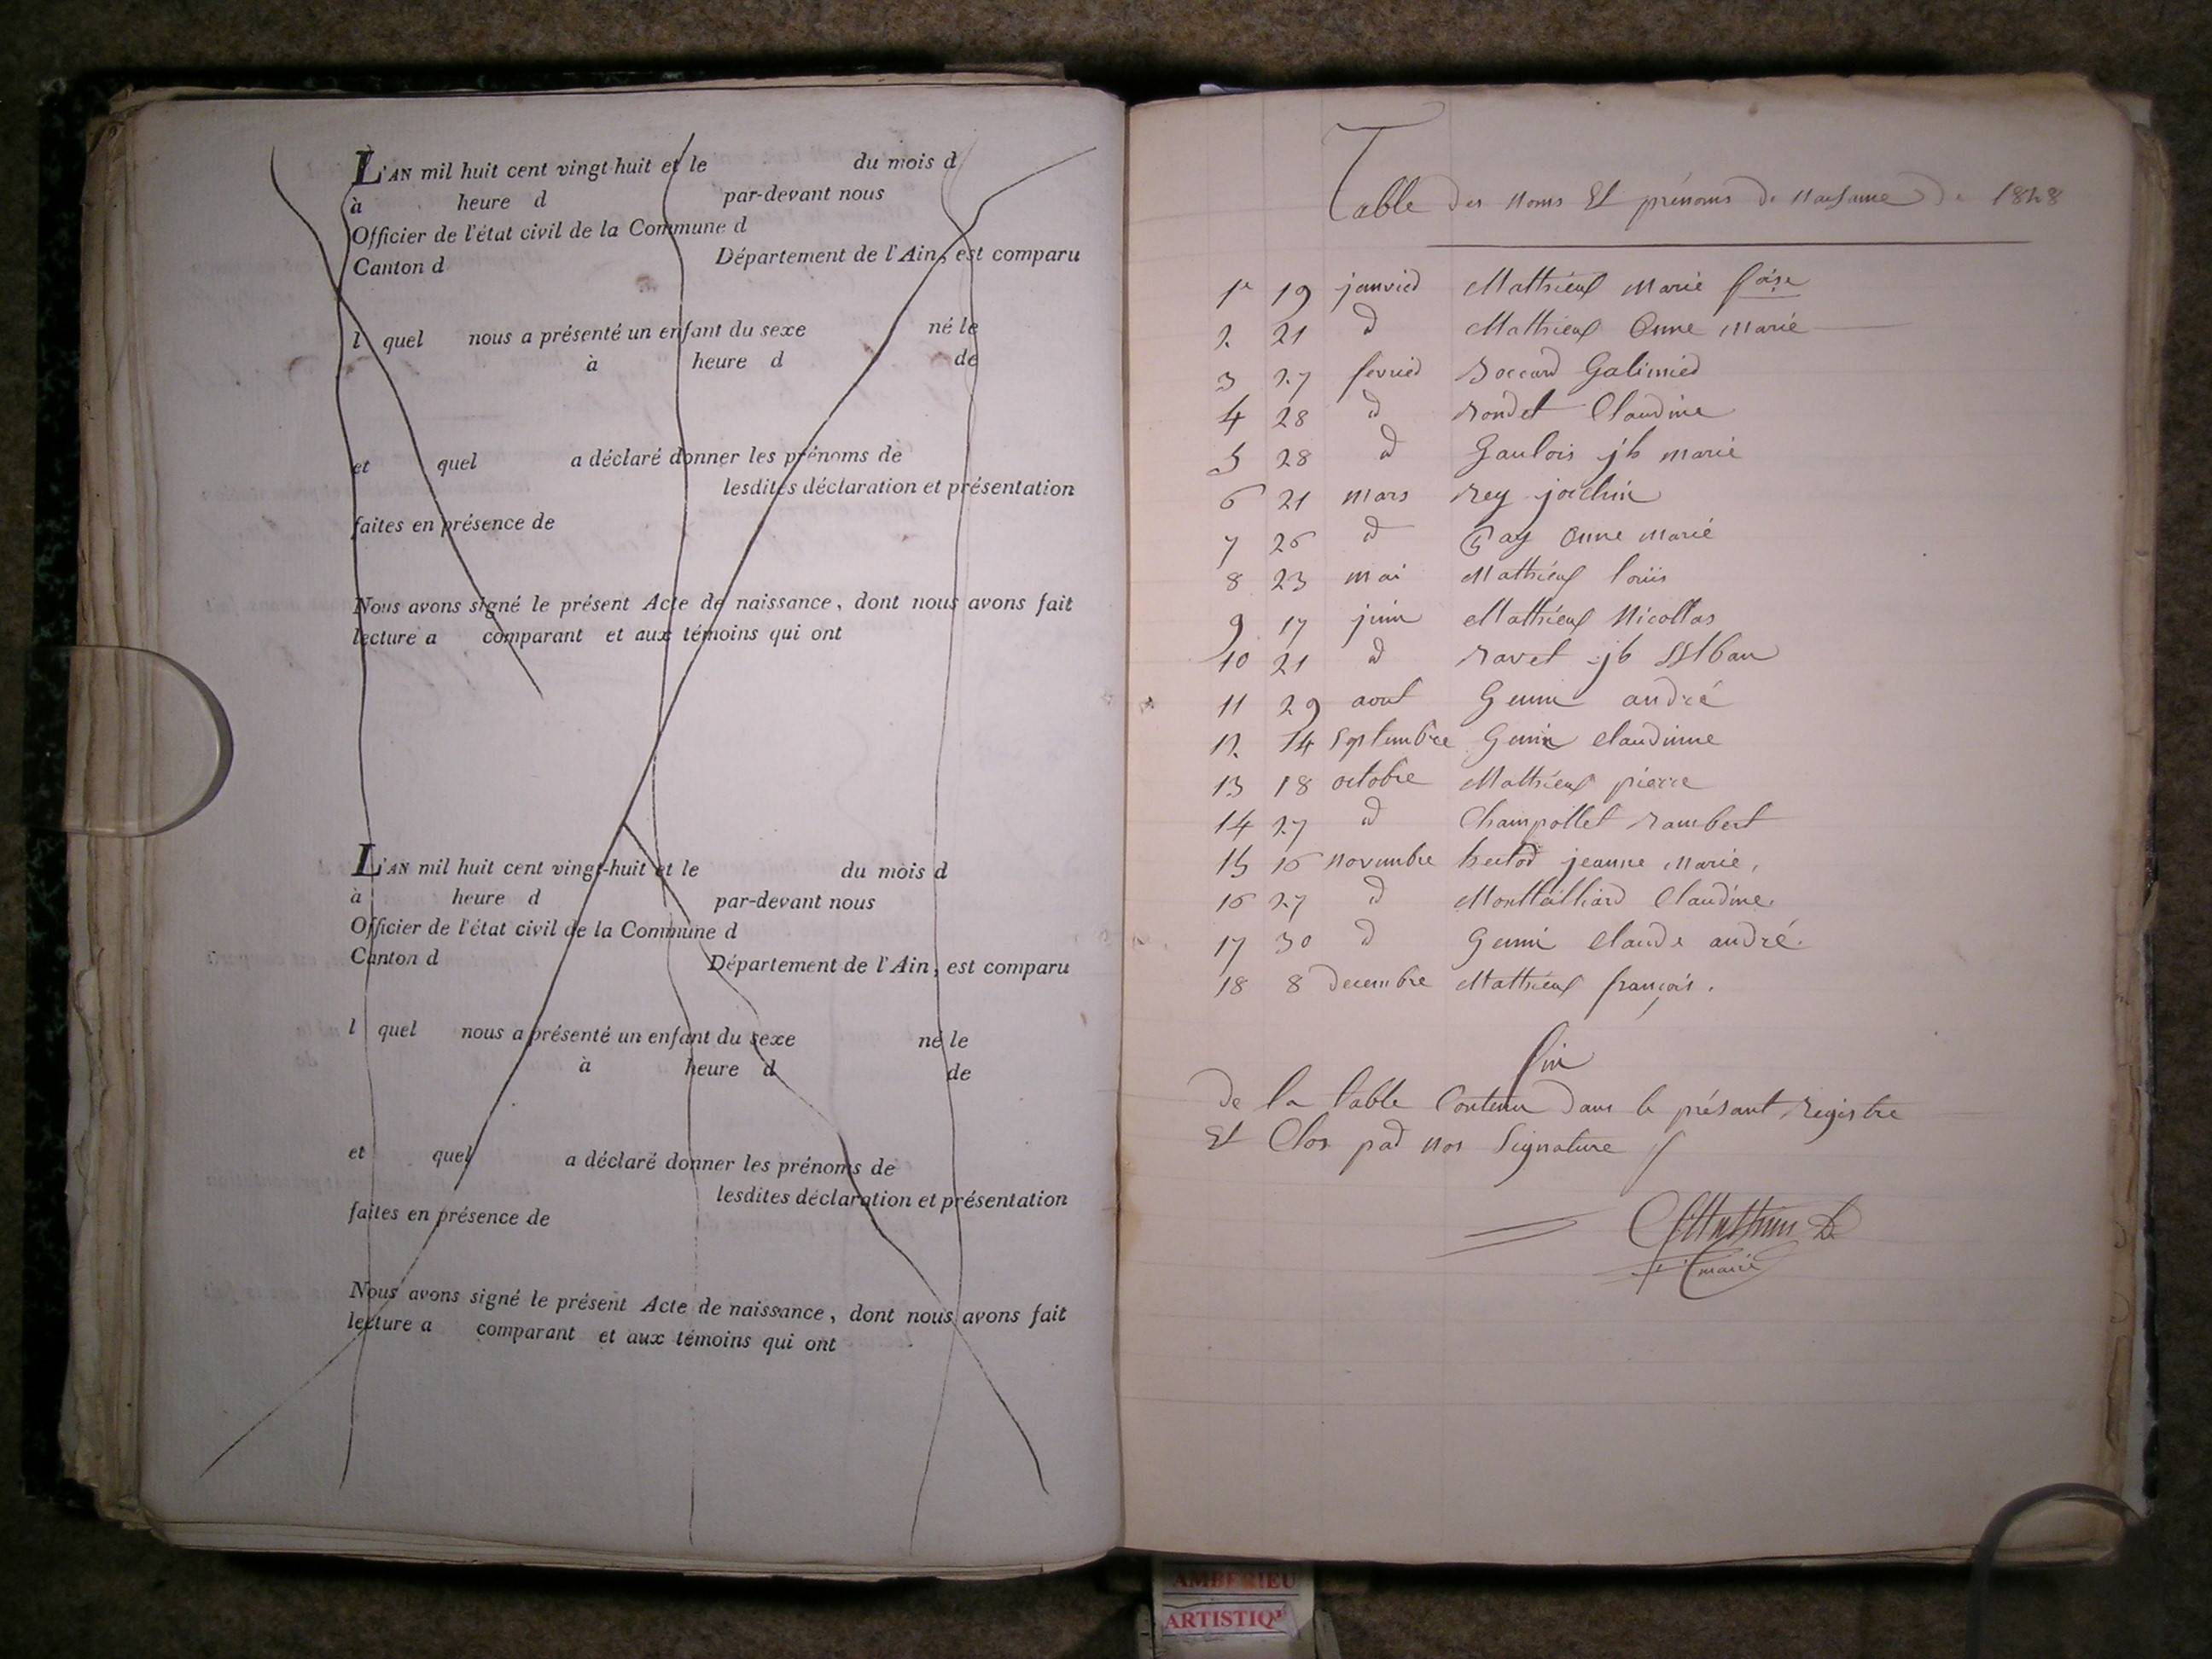 L'AN mil huit cent vingt-huit et le du mois d
à heure d par-devant nous
Officier de l'état civil de la Commune d
Canton d Département de l'Ain, est comparu
l quel nous a présenté un enfant du sexe né le
à heure d de
et quel a déclaré donner les prénoms de
lesdites déclaration et présentation
faites en présence de
Nous avons signé le présent Acte de naissance, dont nous avons fait
lecture a comparant et aux témoins qui ont
L'AN mil huit cent vingt-huit et le du mois d
à heure d par-devant nous
Officier de l'état civil de la Commune d
Canton d Département de l'Ain, est comparu
l quel nous a présenté un enfant du sexe né le
à heure d de
et quel a déclaré donner les prénoms de
lesdites déclaration et présentation
faites en présence de
Nous avons signé le présent Acte de naissance, dont nous avons fait
lecture a comparant et aux témoins qui ont
Table des Noms Et prénoms de Naissance de 1828
1er 19 janvier Mathieux Marie foise
2 21 d Mathieux Anne Marie
3 27 fevrier Boccard
4 28 d Rondet Claudine
5 28 d Gaulois jb marie
6 21 mars Rey
7 26 d Gay Anne Marie
8 23 mai Mathieux louis
9 17 juin Mathieux Nicollas
10 21 d Ravet jb
11 29 aout Genin andré
12 14 Septembre Genin Claudinne
13 18 octobre Mathieux pierre
14 27 d Champollet Rambert
15 16 Novembre jeanne Marie.
16 27 d Claudine.
17 30 d Genin Claude andré.
18 8 Decembre Mathieux françois.
fin
De la table Contenu dans le présant Registre
Et Clos par nos Signature
Mathieux
maire
AMBERIEU
ARTISTIQ